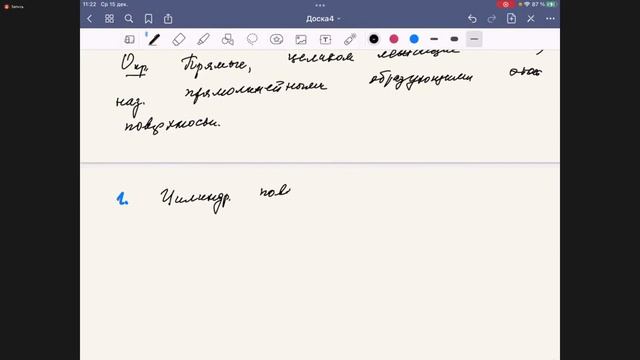 Запись
11:22 Ср 15 дек.
87 %
Доска4
Опр. Прямые, целиком лежащие
наз. прямолинейными образующими этой
поверхности.
1. Цилиндр. пов